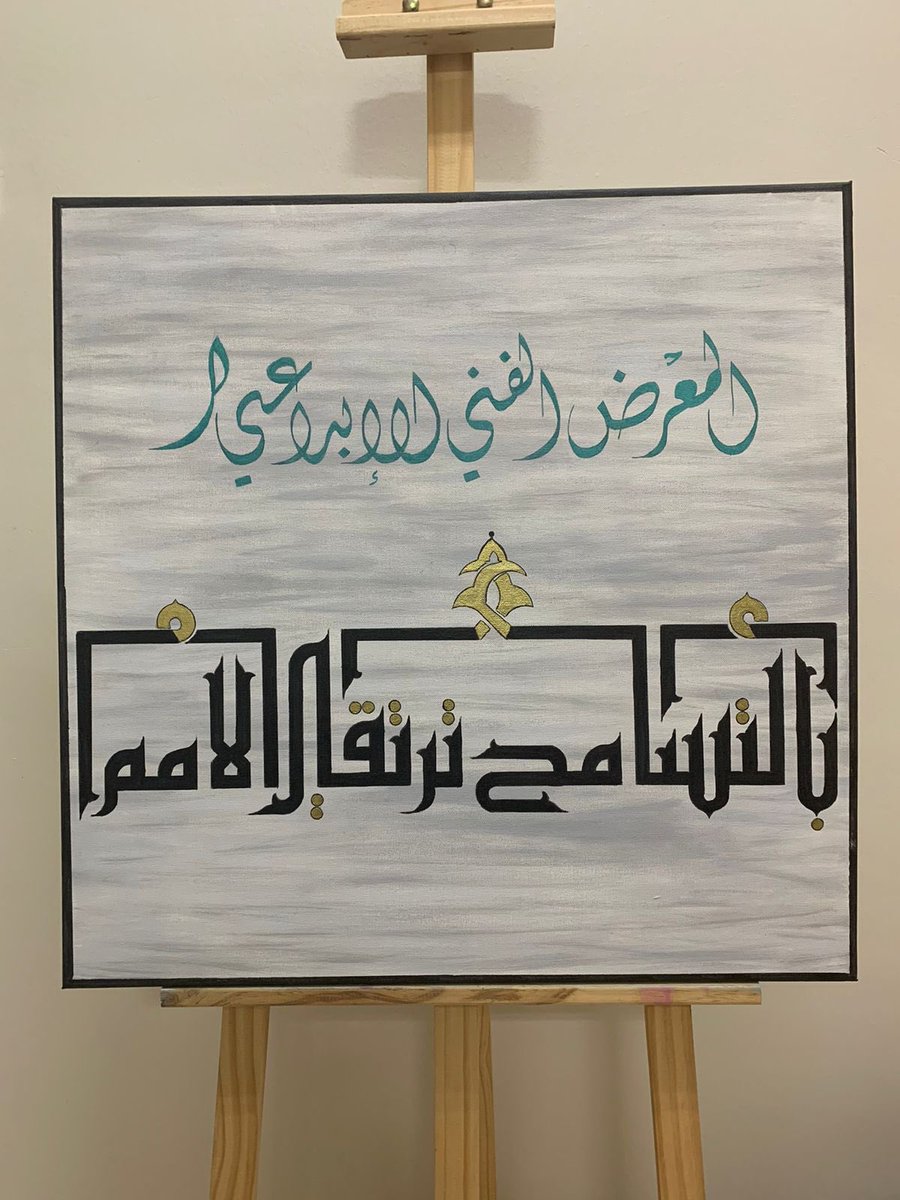 المعرض الفني الإبداعي
بالتسامح ترتقي الامم